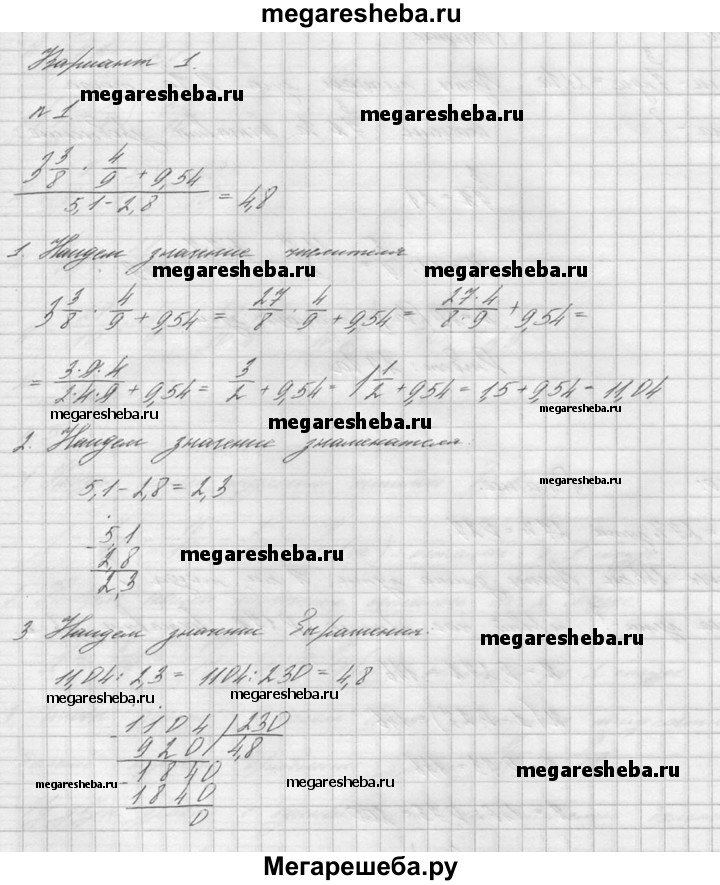 megaresheba.ru
Вариант 1.
megaresheba.ru
№1
megaresheba.ru
3 3/8 · 4/9 + 9,54
5,1 - 2,8
= 4,8
1. Найдем значение числителя
megaresheba.ru megaresheba.ru
3 3/8 · 4/9 + 9,54 = 27/8 · 4/9 + 9,54 = 27·4/8·9 + 9,54 =
= 3·9·4/2·4·9 + 9,54 = 3/2 + 9,54 = 1 1/2 + 9,54 = 1,5 + 9,54 = 11,04
megaresheba.ru megaresheba.ru megaresheba.ru
2. Найдем значение знаменателя:
5,1 - 2,8 = 2,3
megaresheba.ru
- 5,1
2,8
2,3
megaresheba.ru
3 Найдем значени выражения:
megaresheba.ru
11,04 : 2,3 = 1104 : 230 = 4,8
megaresheba.ru megaresheba.ru
- 1104 | 230
920 | 4,8
- 1840
1840
0
megaresheba.ru megaresheba.ru megaresheba.ru
Мегарешеба.ру